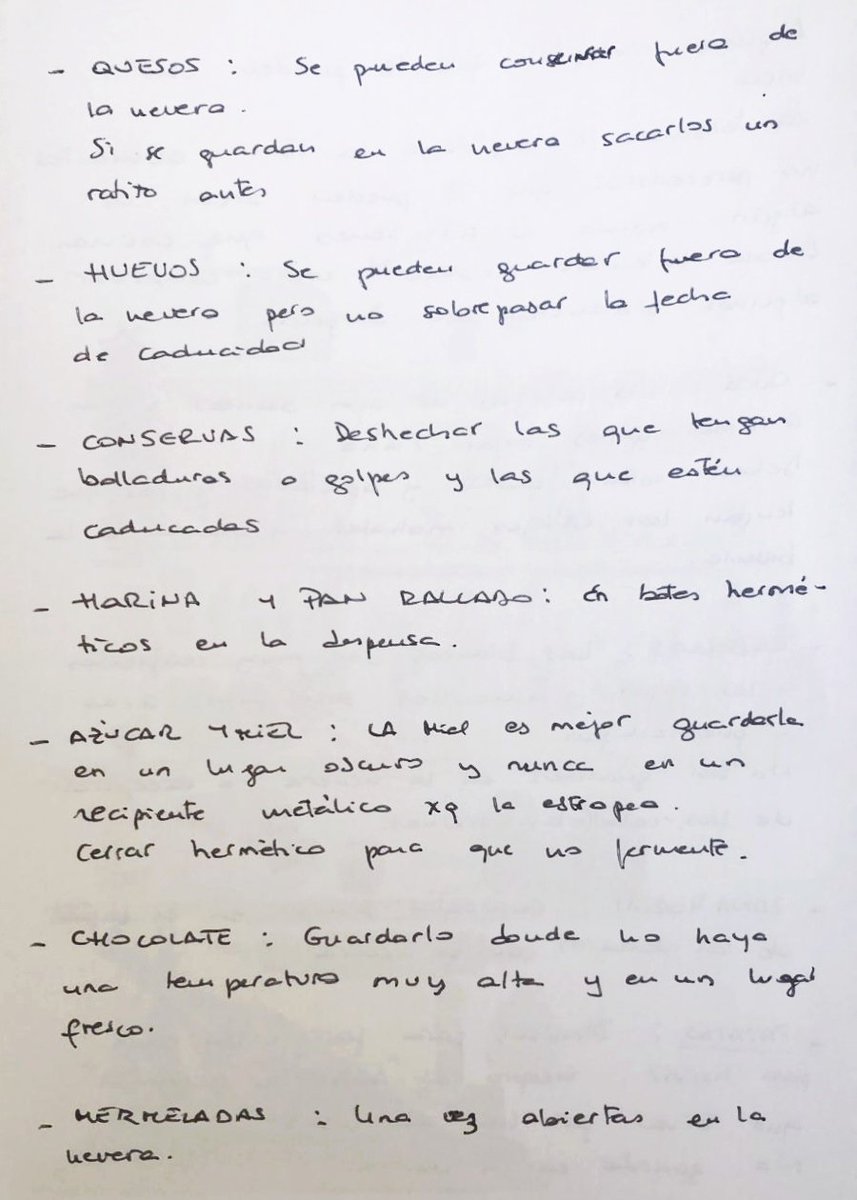 - QUESOS : Se pueden conservar fuera de
la nevera.
Si se guardan en la nevera sacarlos un
ratito antes
- HUEVOS : Se pueden guardar fuera de
la nevera pero no sobrepasar la fecha
de caducidad
- CONSERVAS : Deshechar las que tengan
bolladuras o golpes y las que estén
caducadas
- HARINA Y PAN RALLADO : En botes hermé-
ticos en la despensa.
- AZÚCAR Y MIEL : LA Miel es mejor guardarla
en un lugar oscuro y nunca en un
recipiente metálico xq la estropea.
Cerrar hermético para que no fermente.
- CHOCOLATE : Guardarlo donde no haya
una temperatura muy alta y en un lugar
fresco.
- MERMELADAS : Una vez abiertas en la
nevera.